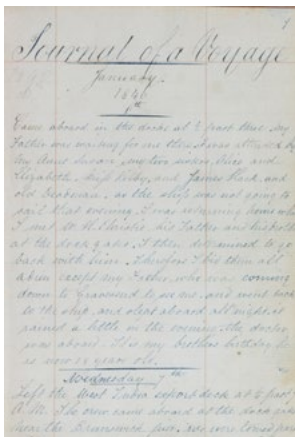 1
Journal of a Voyage
January
1846
6th
Came aboard in the docks at ½ past three. My
Father was waiting for me there. I was attended by
my Aunt Susan, my two sisters, Alice and
Elizabeth, Miss Kilby, and James Black and
old Brabazon, as the ship was not going to
sail that evening. I was returning home when
I met W. H. Christie, his Father and his brother
at the dock gate. I then determined to go
back with him. Therefore I bid them all
adieu except my Father, who was coming
down to Gravesend to see me, and went back
to the ship, and slept aboard all night, it
rained a little in the evening. the doctor
was aboard. It is my brothers birthday he
is now 18 years old.
Wednesday 7th
Left the West India export dock at ½ past 9
A.M. The crew came aboard at the dock gates
Near the Brunswick pier, we were towed